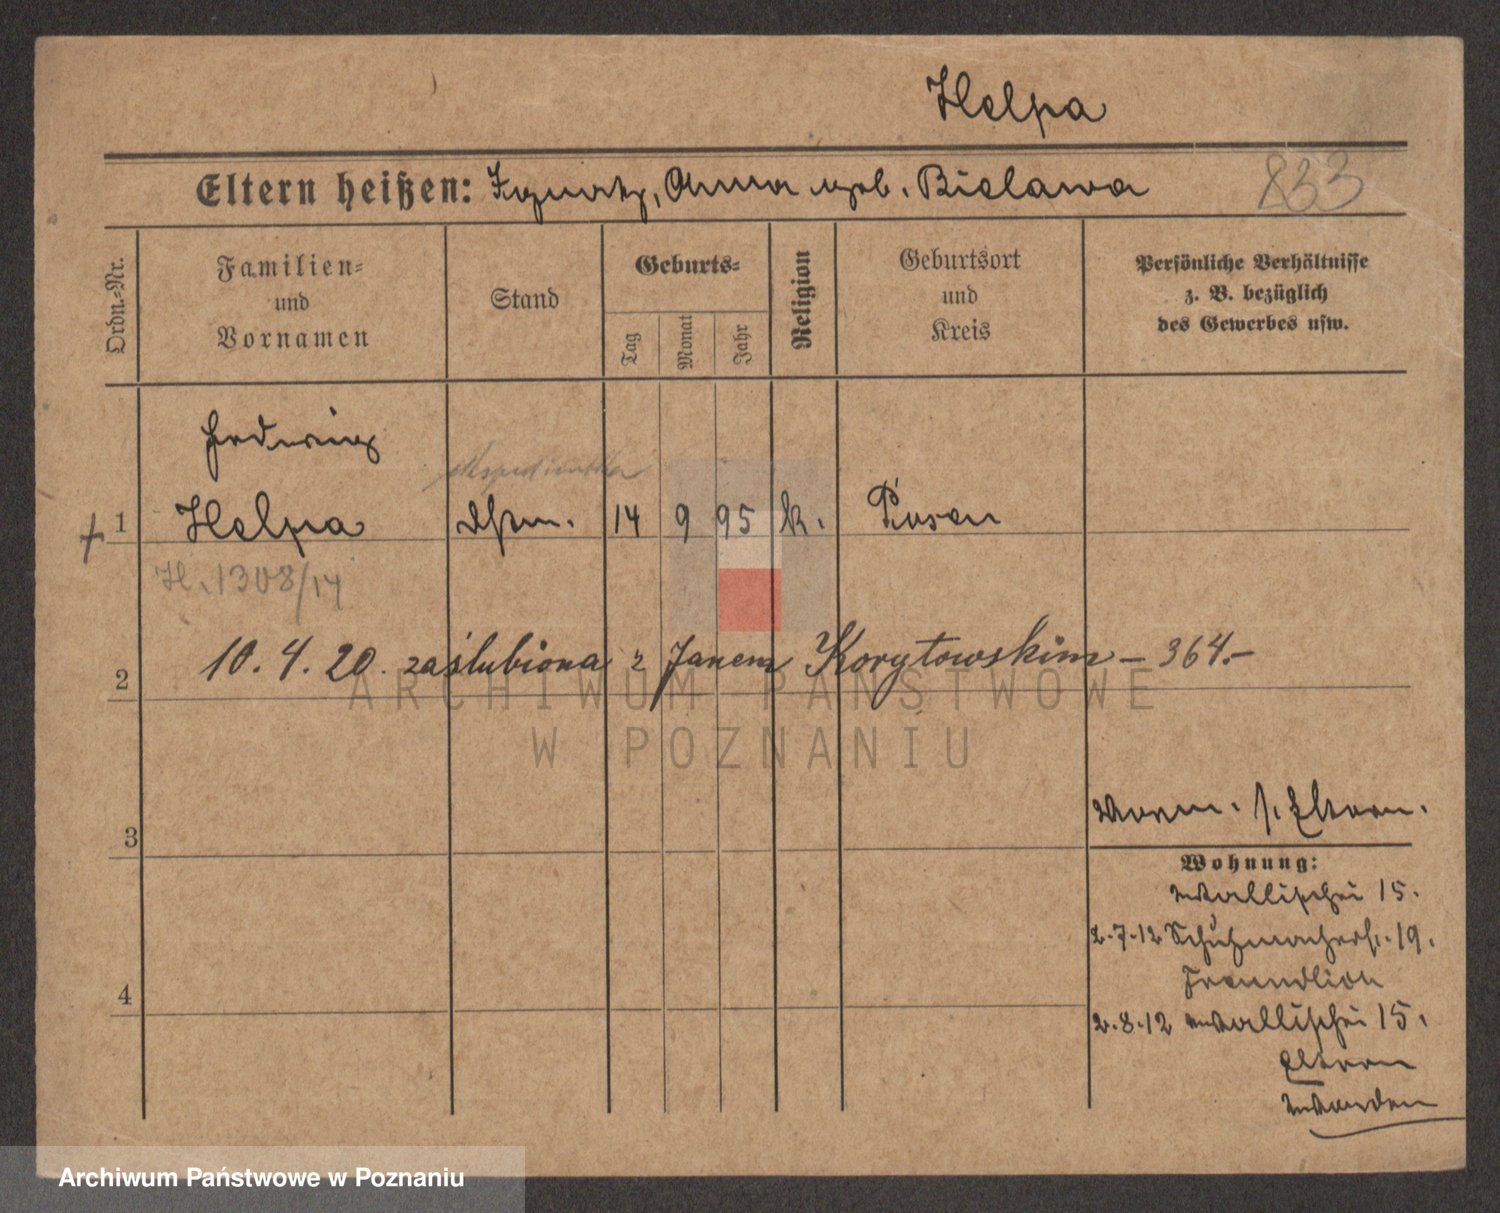 Helpa
Eltern heißen: Ignatz, Anna geb. Bielawa
833
Ordn.-Nr.
Familien-
und
Vornamen
Stand
Geburts-
Tag
Monat
Jahr
Religion
Geburtsort
und
Kreis
Persönliche Verhältnisse
z. B. bezüglich
des Gewerbes usw.
Hedwig
ekspedientka
+ 1 Helpa 14 9 95 k. Posen
H. 1308/14
2 10. 4. 20. zaślubiona z Janem Korytowskim – 364.–
3 Vorm. s. Eltern.
Wohnung:
Wallischei 15.
2.7.12 Schuhmacherst. 19.
2.8.12 Wallischei 15.
4
Eltern
ARCHIWUM PAŃSTWOWE
W POZNANIU
Archiwum Państwowe w Poznaniu